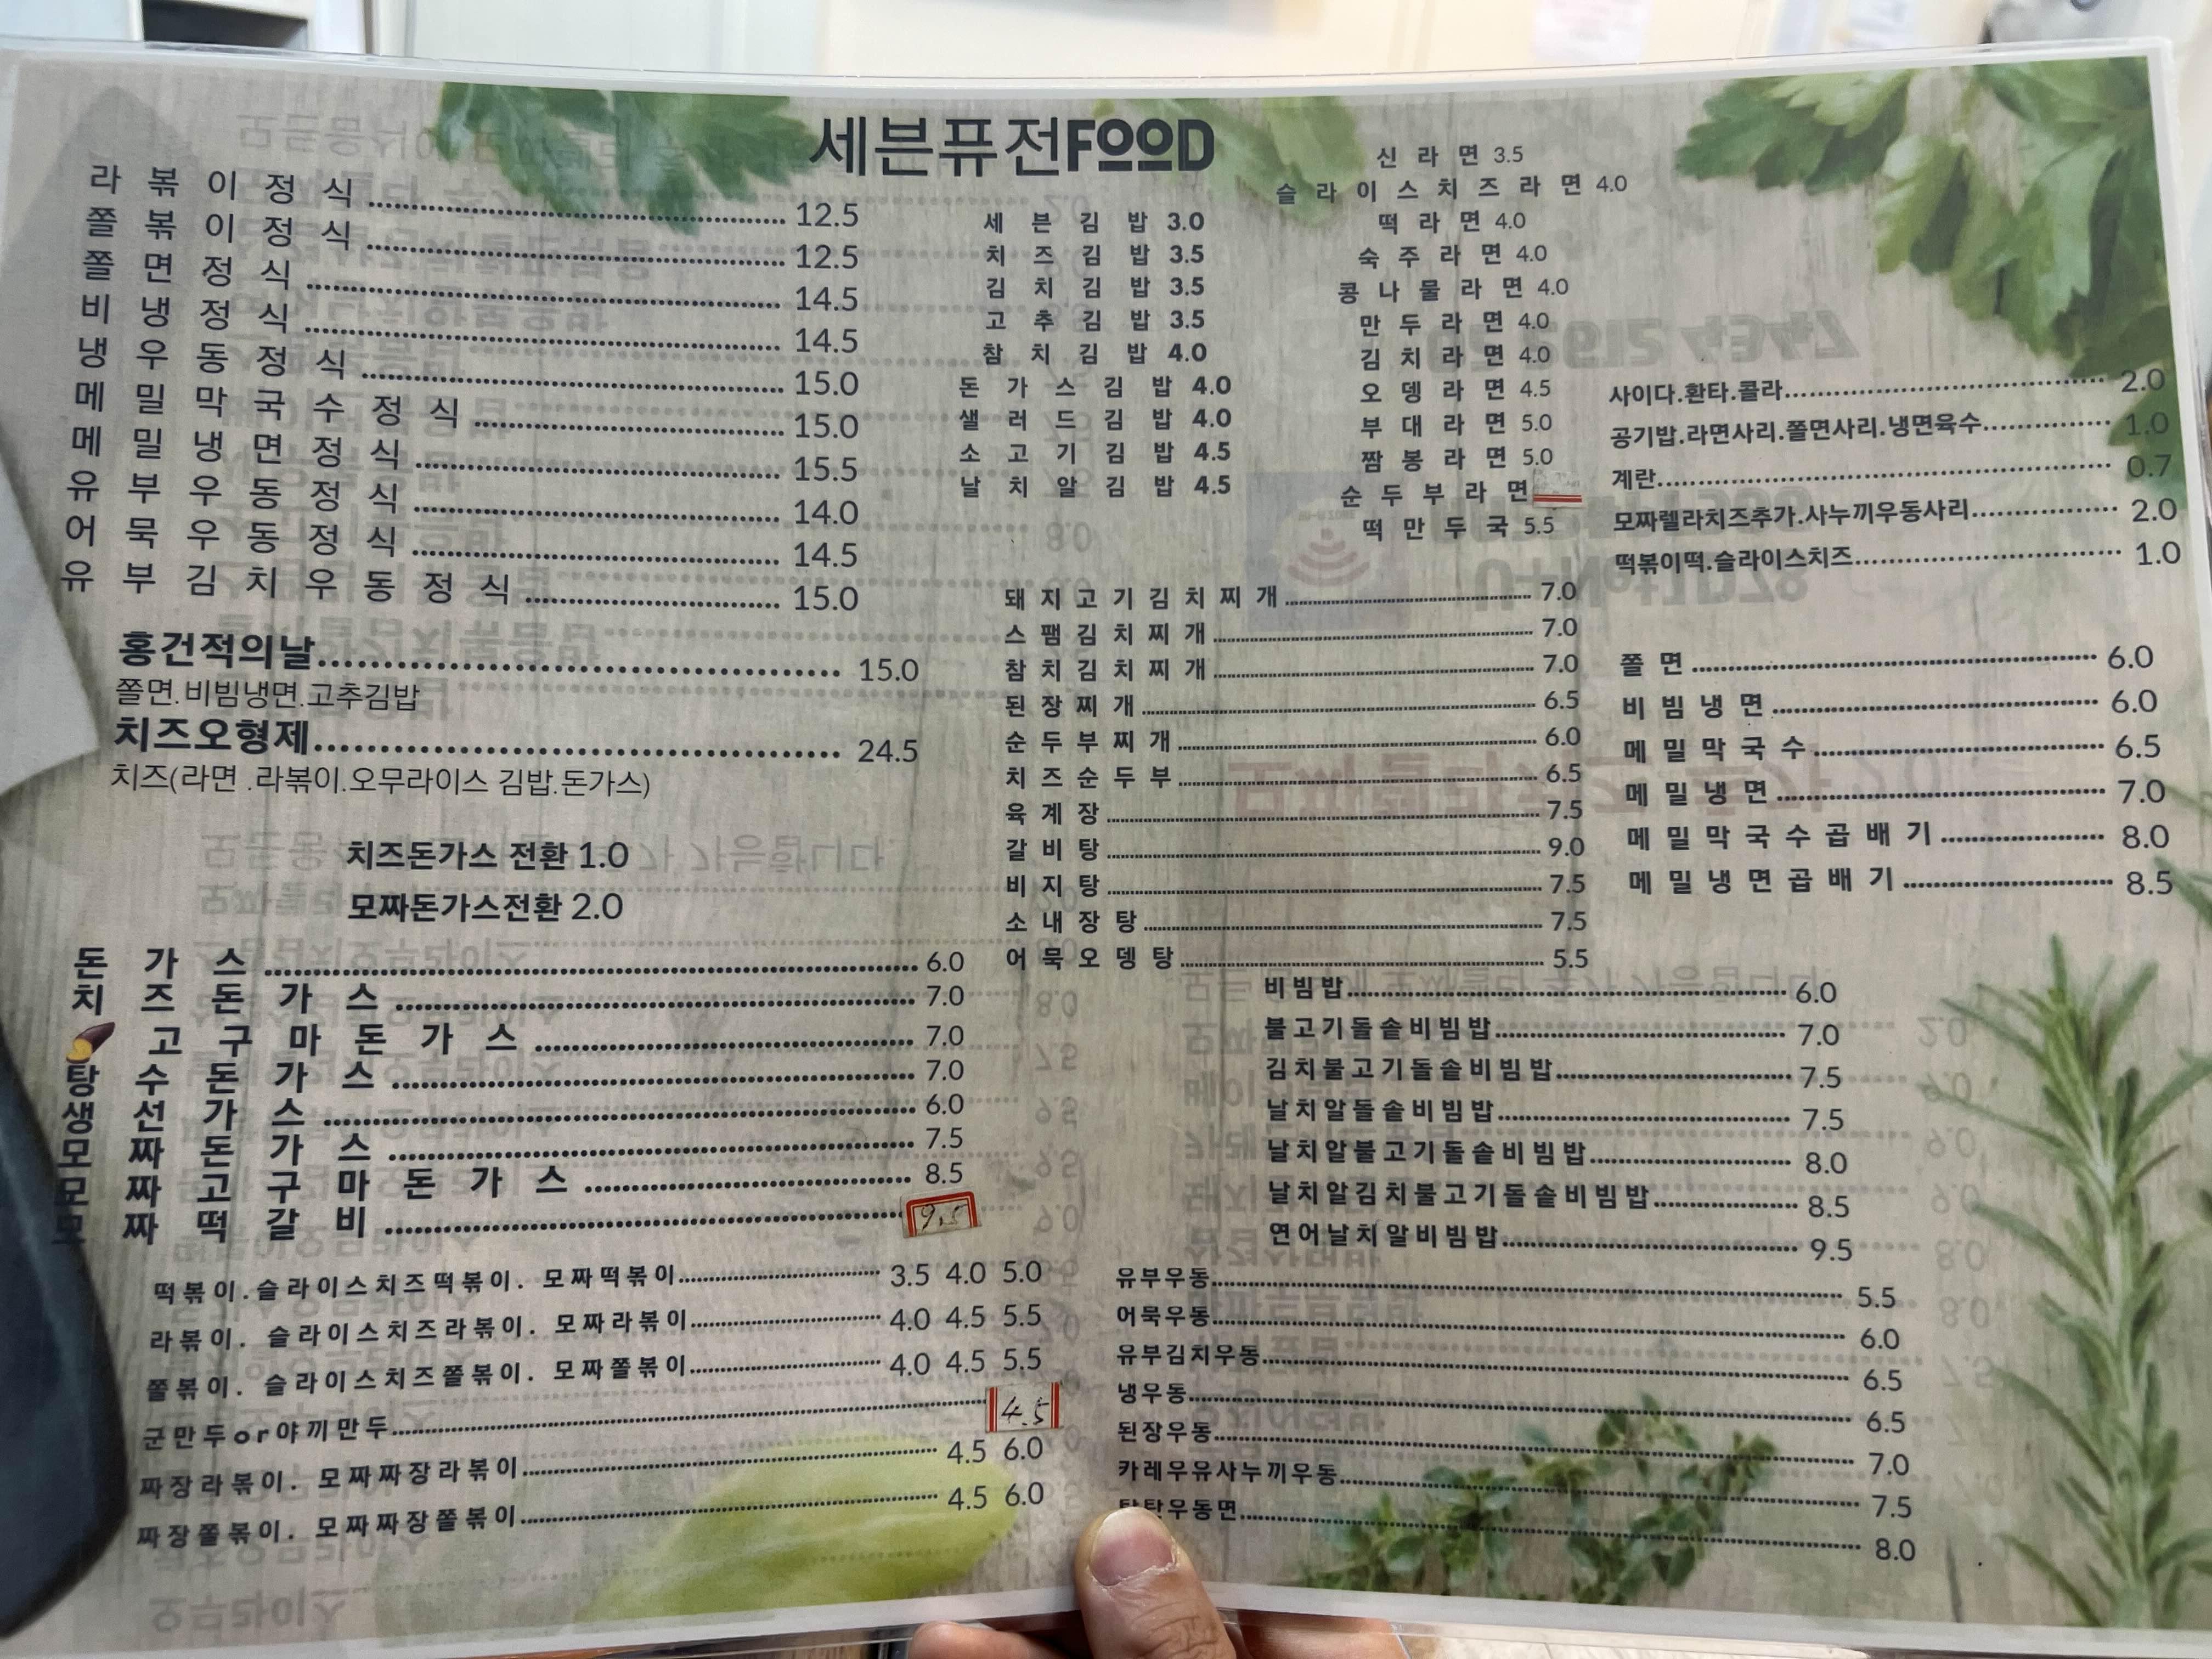 세븐퓨전FOOD
라볶이정식 12.5
쫄볶이정식 12.5
쫄면정식 14.5
비냉정식 14.5
냉우동정식 15.0
메밀막국수정식 15.0
메밀냉면정식 15.5
유부우동정식 14.0
어묵우동정식 14.5
유부김치우동정식 15.0
홍건적의날 15.0
쫄면.비빔냉면.고추김밥
치즈오형제 24.5
치즈(라면 .라볶이.오무라이스 김밥.돈가스)
치즈돈가스 전환 1.0
모짜돈가스전환 2.0
돈가스 6.0
치즈돈가스 7.0
고구마돈가스 7.0
탕수돈가스 7.0
생선가스 6.0
모짜돈가스 7.5
모짜고구마돈가스 8.5
모짜떡갈비 9.5
떡볶이.슬라이스치즈떡볶이. 모짜떡볶이 3.5 4.0 5.0
라볶이. 슬라이스치즈라볶이. 모짜라볶이 4.0 4.5 5.5
쫄볶이. 슬라이스치즈쫄볶이. 모짜쫄볶이 4.0 4.5 5.5
군만두or야끼만두 4.5
짜장라볶이. 모짜짜장라볶이 4.5 6.0
짜장쫄볶이. 모짜짜장쫄볶이 4.5 6.0
세븐김밥 3.0
치즈김밥 3.5
김치김밥 3.5
고추김밥 3.5
참치김밥 4.0
돈가스김밥 4.0
샐러드김밥 4.0
소고기김밥 4.5
날치알김밥 4.5
신라면 3.5
슬라이스치즈라면 4.0
떡라면 4.0
숙주라면 4.0
콩나물라면 4.0
만두라면 4.0
김치라면 4.0
오뎅라면 4.5
부대라면 5.0
짬봉라면 5.0
순두부라면
떡만두국 5.5
돼지고기김치찌개 7.0
스팸김치찌개 7.0
참치김치찌개 7.0
된장찌개 6.5
순두부찌개 6.0
치즈순두부 6.5
육계장 7.5
갈비탕 9.0
비지탕 7.5
소내장탕 7.5
어묵오뎅탕 5.5
사이다.환타.콜라 2.0
공기밥.라면사리.쫄면사리.냉면육수 1.0
계란 0.7
모짜렐라치즈추가.사누끼우동사리 2.0
떡볶이떡.슬라이스치즈 1.0
쫄면 6.0
비빔냉면 6.0
메밀막국수 6.5
메밀냉면 7.0
메밀막국수곱배기 8.0
메밀냉면곱배기 8.5
비빔밥 6.0
불고기돌솥비빔밥 7.0
김치불고기돌솥비빔밥 7.5
날치알돌솥비빔밥 7.5
날치알불고기돌솥비빔밥 8.0
날치알김치불고기돌솥비빔밥 8.5
연어날치알비빔밥 9.5
유부우동 5.5
어묵우동 6.0
유부김치우동 6.5
냉우동 6.5
된장우동 7.0
카레우유사누끼우동 7.5
탄탄우동면 8.0